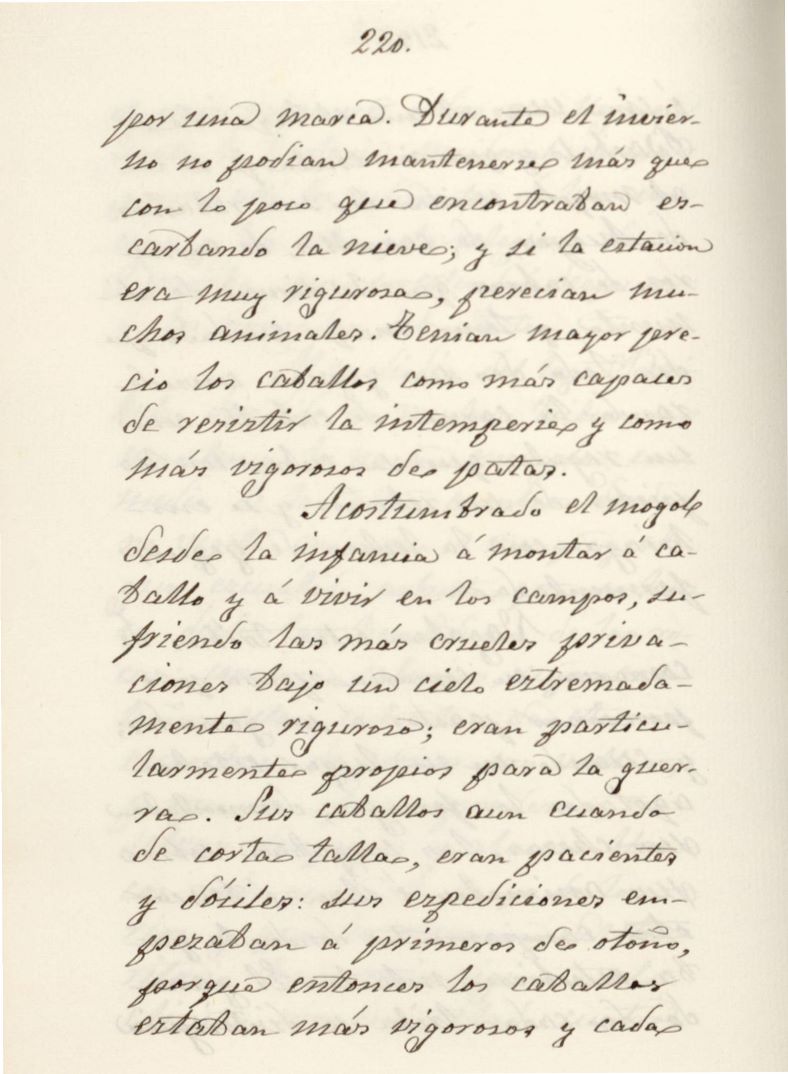 220.
por una marca. Durante el invier-
no no podian mantenerse más que
con lo poco que encontraban es-
carbando la nieve; y si la estacion
era muy rigurosa, perecian mu-
chos animales. Tenian mayor pre-
cio los caballos como más capaces
de resistir la intemperie y como
más vigorosos de patas.
Acostumbrado el mogol
desde la infancia á montar á ca-
ballo y á vivir en los campos, su-
friendo las más crueles priva-
ciones bajo un cielo estremada-
mente riguroso; eran particu-
larmente propios para la guer-
ra. Sus caballos aun cuando
de corta talla, eran pacientes
y dóciles: sus espediciones em-
pezaban á primeros de otoño,
porque entonces los caballos
estaban más vigorosos y cada